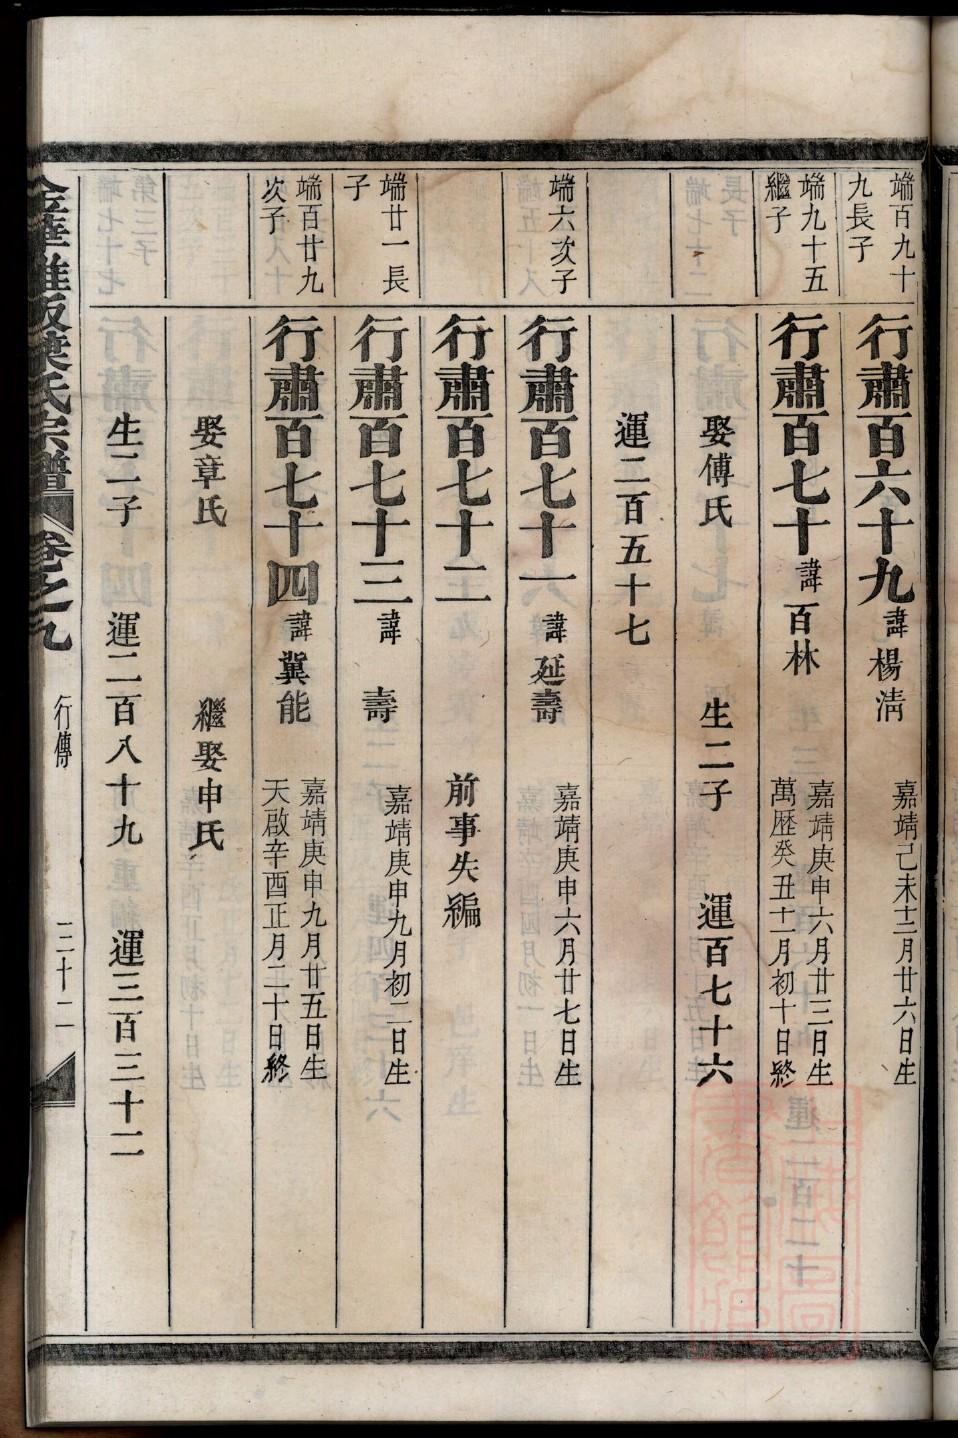 端百九十
九長子
行肅百六十九 諱楊淸
嘉靖己未十二月廿六日生
端九十五
繼子
行肅百七十 諱百林
嘉靖庚申六月廿三日生
萬歷癸丑十一月初十日終
娶傅氏 生二子 運百七十六
運二百五十七
端六次子
行肅百七十一 諱延壽
嘉靖庚申六月廿七日生
行肅百七十二 前事失編
端廿一長
子
行肅百七十三 諱壽
嘉靖庚申九月初二日生
端百廿九
次子
行肅百七十四 諱冀能
嘉靖庚申九月廿五日生
天啟辛酉正月二十日終
娶章氏 繼娶申氏
生二子 運二百八十九 運三百三十二
葉氏宗譜 卷之九 行傳 三十二